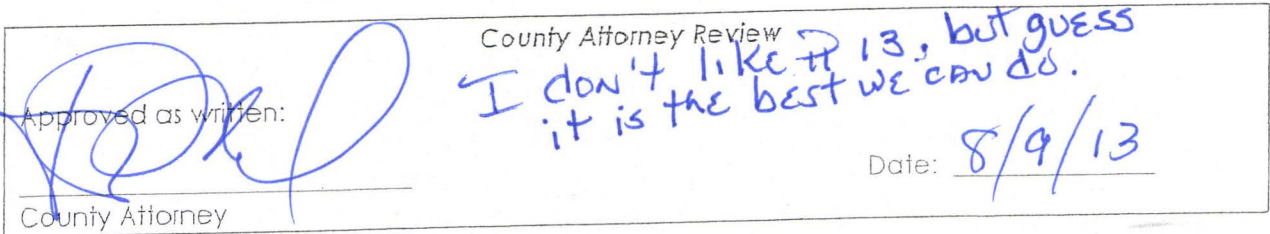 County Attorney Review
I don't like ¶ 13, but guess
it is the best we can do.
Approved as written:
Date: 8/9/13
County Attorney